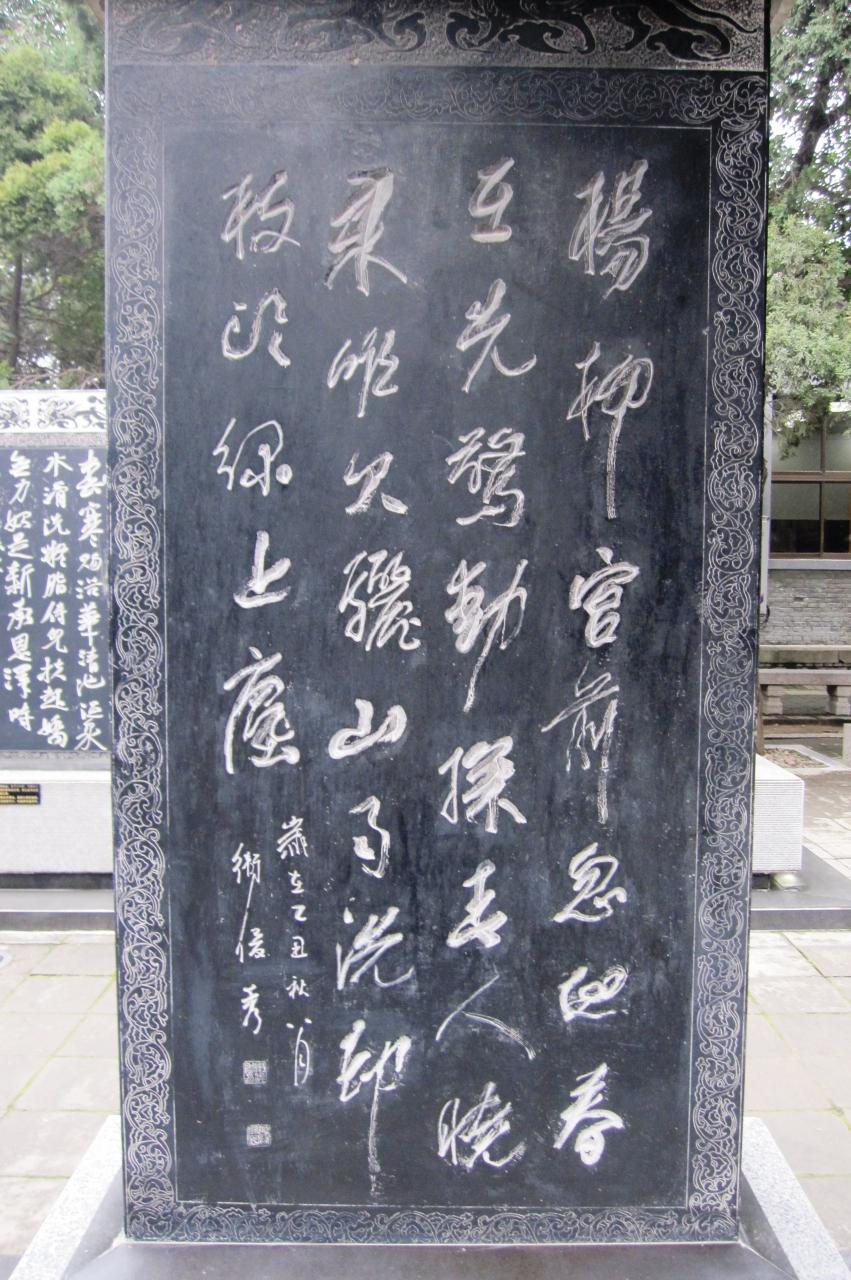 楊柳宮前忽地春
在先驚動探春人曉
來唯欠驪山雨洗卻
枝頭綠上塵
歲在乙丑秋八月
衛俊秀
春寒賜浴華清池溫泉
水滑洗凝脂侍兒扶起嬌
無力始是新承恩澤時